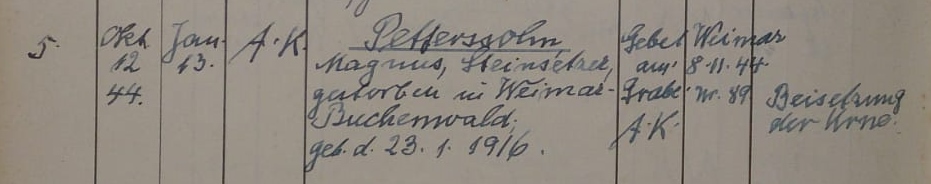 5. Okt. Jan. A.K. Pettersson, Gebet Weimar
12 13. Magnus, Steinsetzer, am 8.11.44.
44. gestorben in Weimar- Grabe Nr. 89 Beisetzung
Buchenwald, A.K. der Urne.
geb. d. 23. 1. 1916.